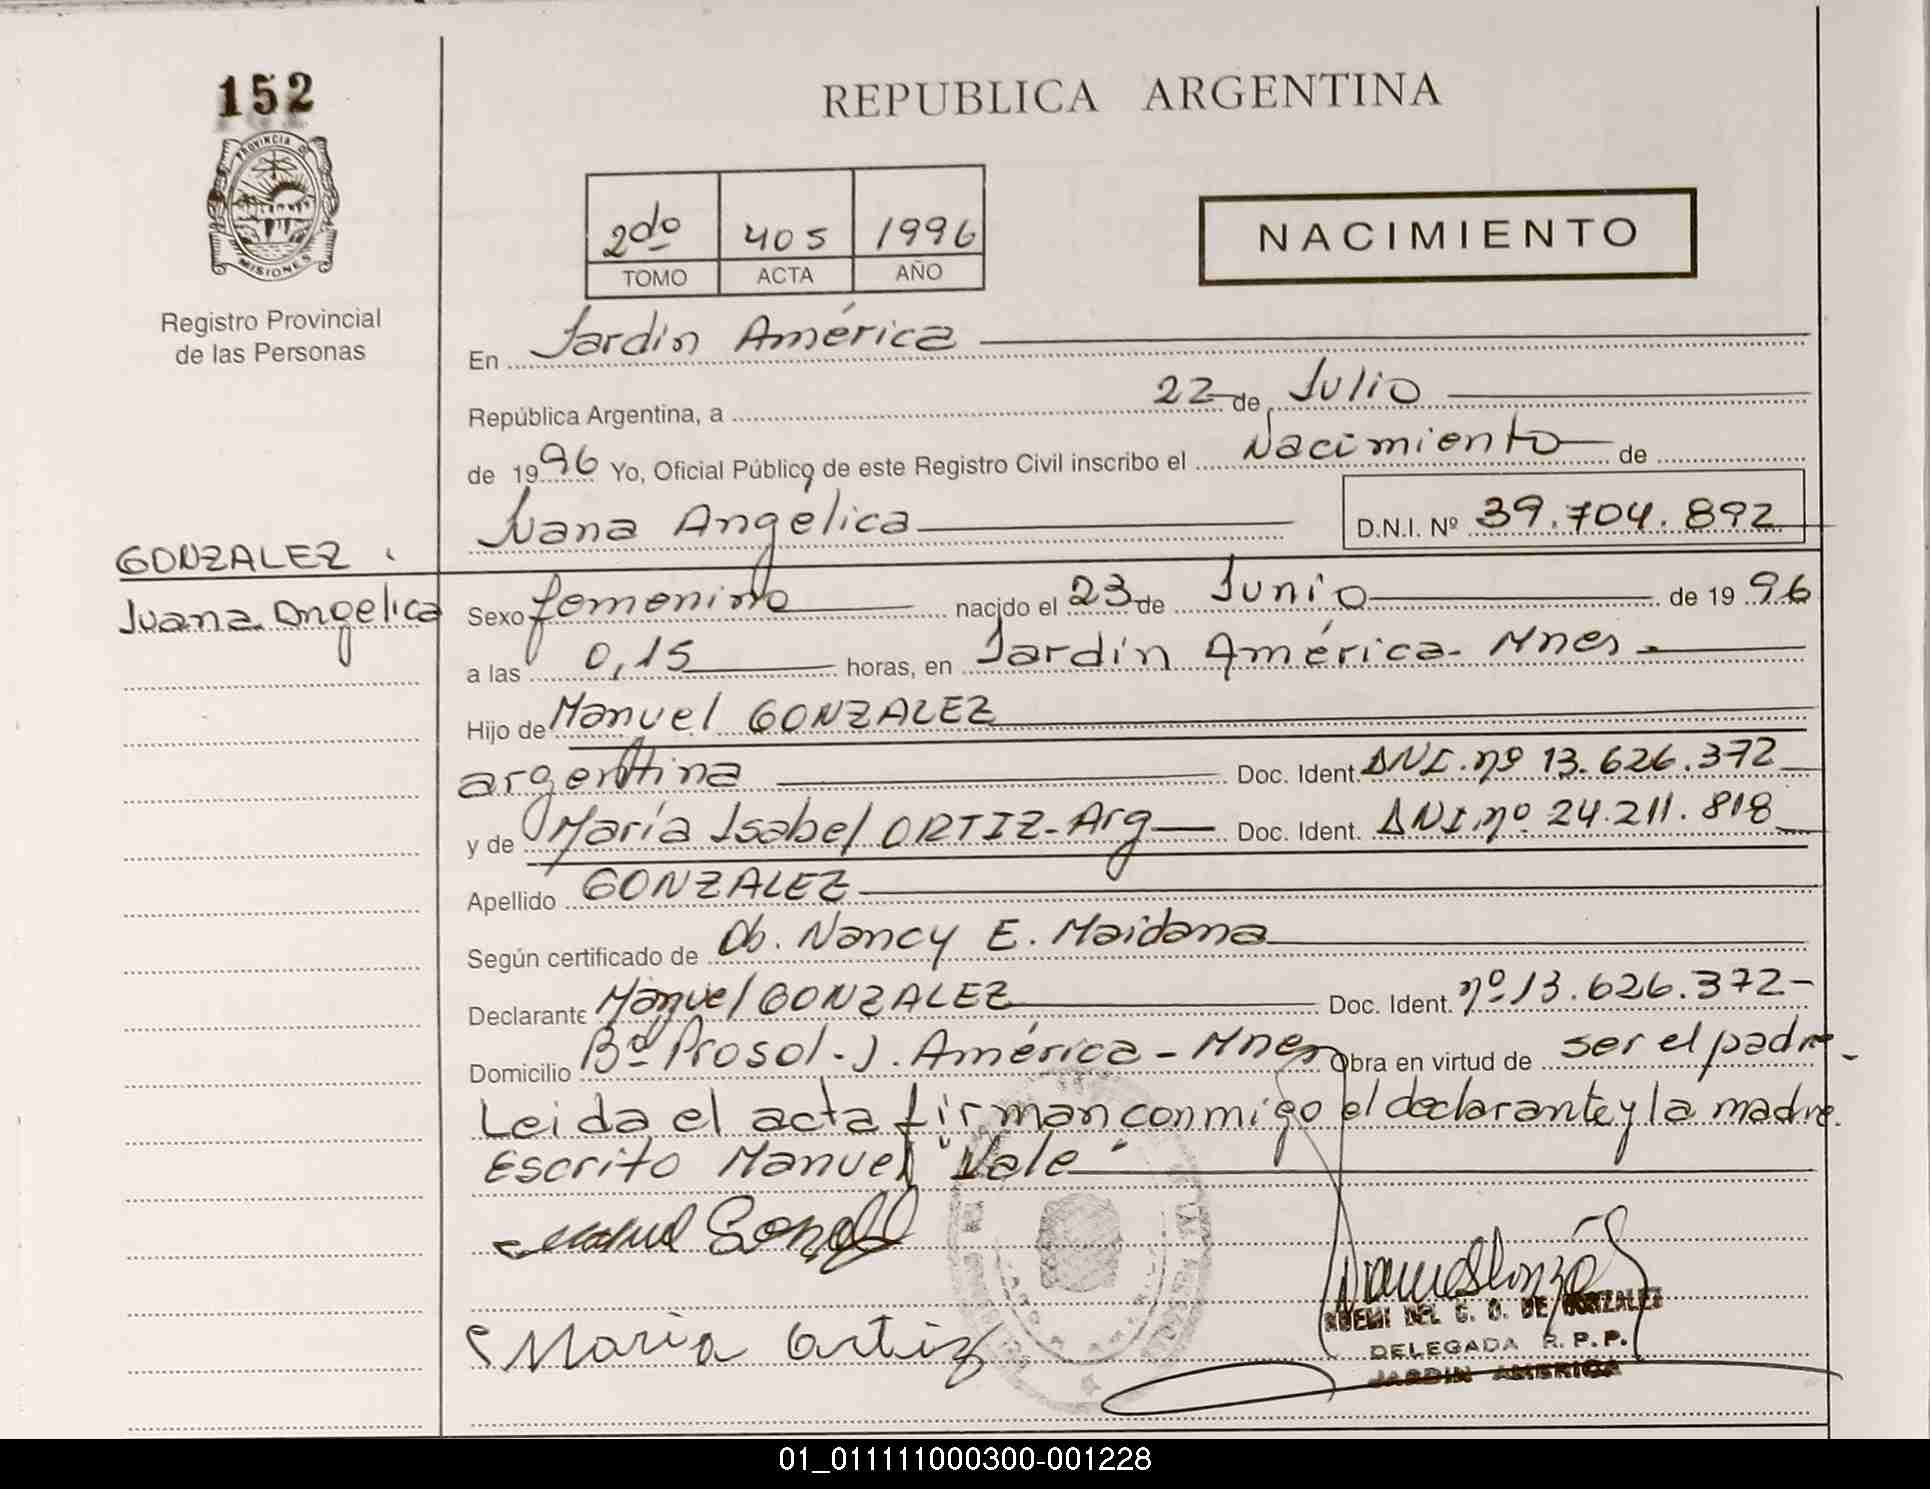 152
PROVINCIA D
MISIONES
Registro Provincial
de las Personas
REPUBLICA ARGENTINA
2do 405 1996
TOMO ACTA AÑO
NACIMIENTO
En Jardín América
República Argentina, a 22 de Julio
de 1996 Yo, Oficial Público de este Registro Civil inscribo el Nacimiento de
Juana Angélica D.N.I. Nº 39.704.892
GONZALEZ
Juana Angelica
Sexo femenino nacido el 23 de Junio de 1996
a las 0,15 horas, en Jardín América - Mnes -
Hijo de Manuel GONZALEZ
argentina Doc. Ident. DNI. nº 13.626.372
y de María Isabel ORTIZ - Arg Doc. Ident. DNI nº 24.211.818
Apellido GONZALEZ
Según certificado de Ob. Nancy E. Maidana
Declarante Manuel GONZALEZ Doc. Ident. nº 13.626.372-
Domicilio Bº Prosol - J. América - Mnes Obra en virtud de ser el padre -
Leida el acta firman conmigo el declarante y la madre.
Escrito Manuel "Vale"
Maria Ortiz
NOEMI DEL C. O. DE GONZALEZ
DELEGADA R. P. P.
JARDIN AMERICA
01_011111000300-001228